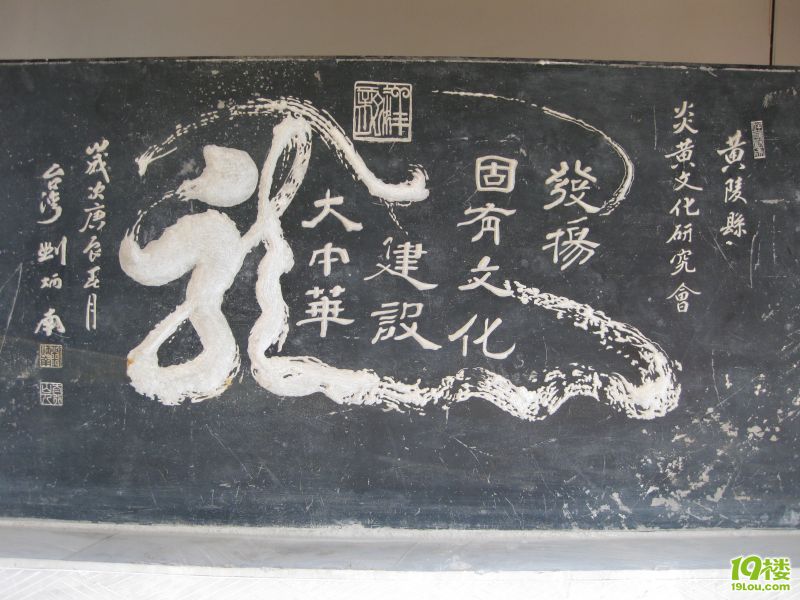 黃陵縣、
炎黃文化研究會
發揚
固有文化
建設
大中華
龍
歲次庚辰春月
台灣 劉炳南
19楼
19lou.com